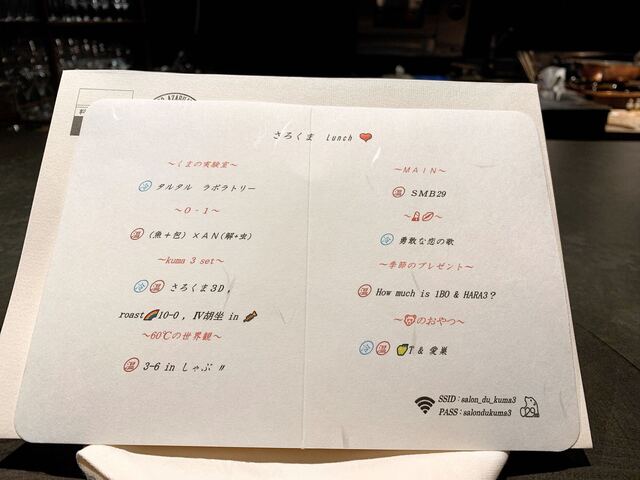 さろくま Lunch ❤
～くまの実験室～
冷 タルタル ラボラトリー
～0-1～
温 (魚+包)×AN(解+虫)
～kuma 3 set～
冷 温 さろくま3D,
roast🌈10-0, Ⅳ胡坐 in 🍬
～60℃の世界観～
温 3-6 in しゃぶ〃
～MAIN～
温 SMB29
冷 勇敢な恋の歌
～季節のプレゼント～
温 How much is 1BO & HARA3?
～🐻のおやつ～
冷 温 🍏T & 愛巣
SSID:salon_du_kuma3
PASS:salondukuma3
29